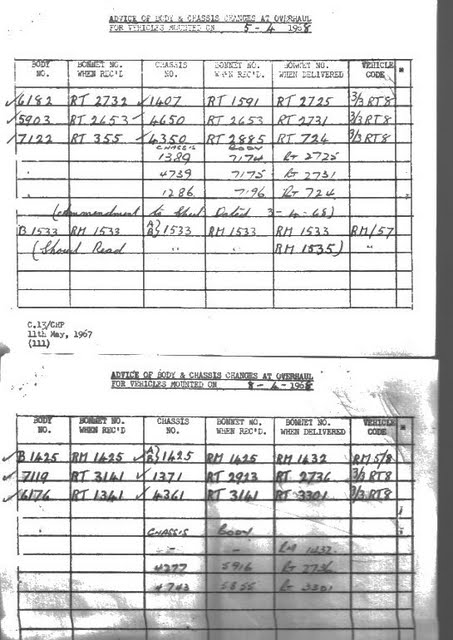 ADVICE OF BODY & CHASSIS CHANGES AT OVERHAUL
FOR VEHICLES MOUNTED ON 5-4 1968
BODY NO. BONNET NO. WHEN REC'D CHASSIS NO. BONNET NO. WHEN REC'D. BONNET NO. WHEN DELIVERED VEHICLE CODE *
✓6182 RT 2732 ✓1407 RT 1591 RT 2725 3/3 RT8
✓5903 RT 2653 ✓4650 RT 2653 RT 2731 3/3 RT8
✓7122 RT 355 ✓4350 RT 2885 RT 724 3/3 RT8
CHASSIS BODY
1389 7174 Rt 2725
4739 7175 Rt 2731
1286 7196 Rt 724
(Ammendment to Sheet Dated 3-4-68)
B 1533 RM 1533 A/B} 1533 RM 1533 RM 1533 RM/57
(Should Read " " RM 1535) "
C.13/CHF
11th May, 1967
(111)
ADVICE OF BODY & CHASSIS CHANGES AT OVERHAUL
FOR VEHICLES MOUNTED ON 8-4-1968
BODY NO. BONNET NO. WHEN REC'D CHASSIS NO. BONNET NO. WHEN REC'D. BONNET NO. WHEN DELIVERED VEHICLE CODE *
✓B 1425 RM 1425 ✓A/B} 1425 RM 1425 RM 1432 RM 5/8
✓7119 RT 3141 ✓1371 RT 2923 RT 2736 3/3 RT8
✓6176 RT 1341 ✓4361 RT 3141 RT 3301 3/3 RT8
CHASSIS BODY
- - - RM 1432
4377 5916 Rt 2736
4743 5855 Rt 3301